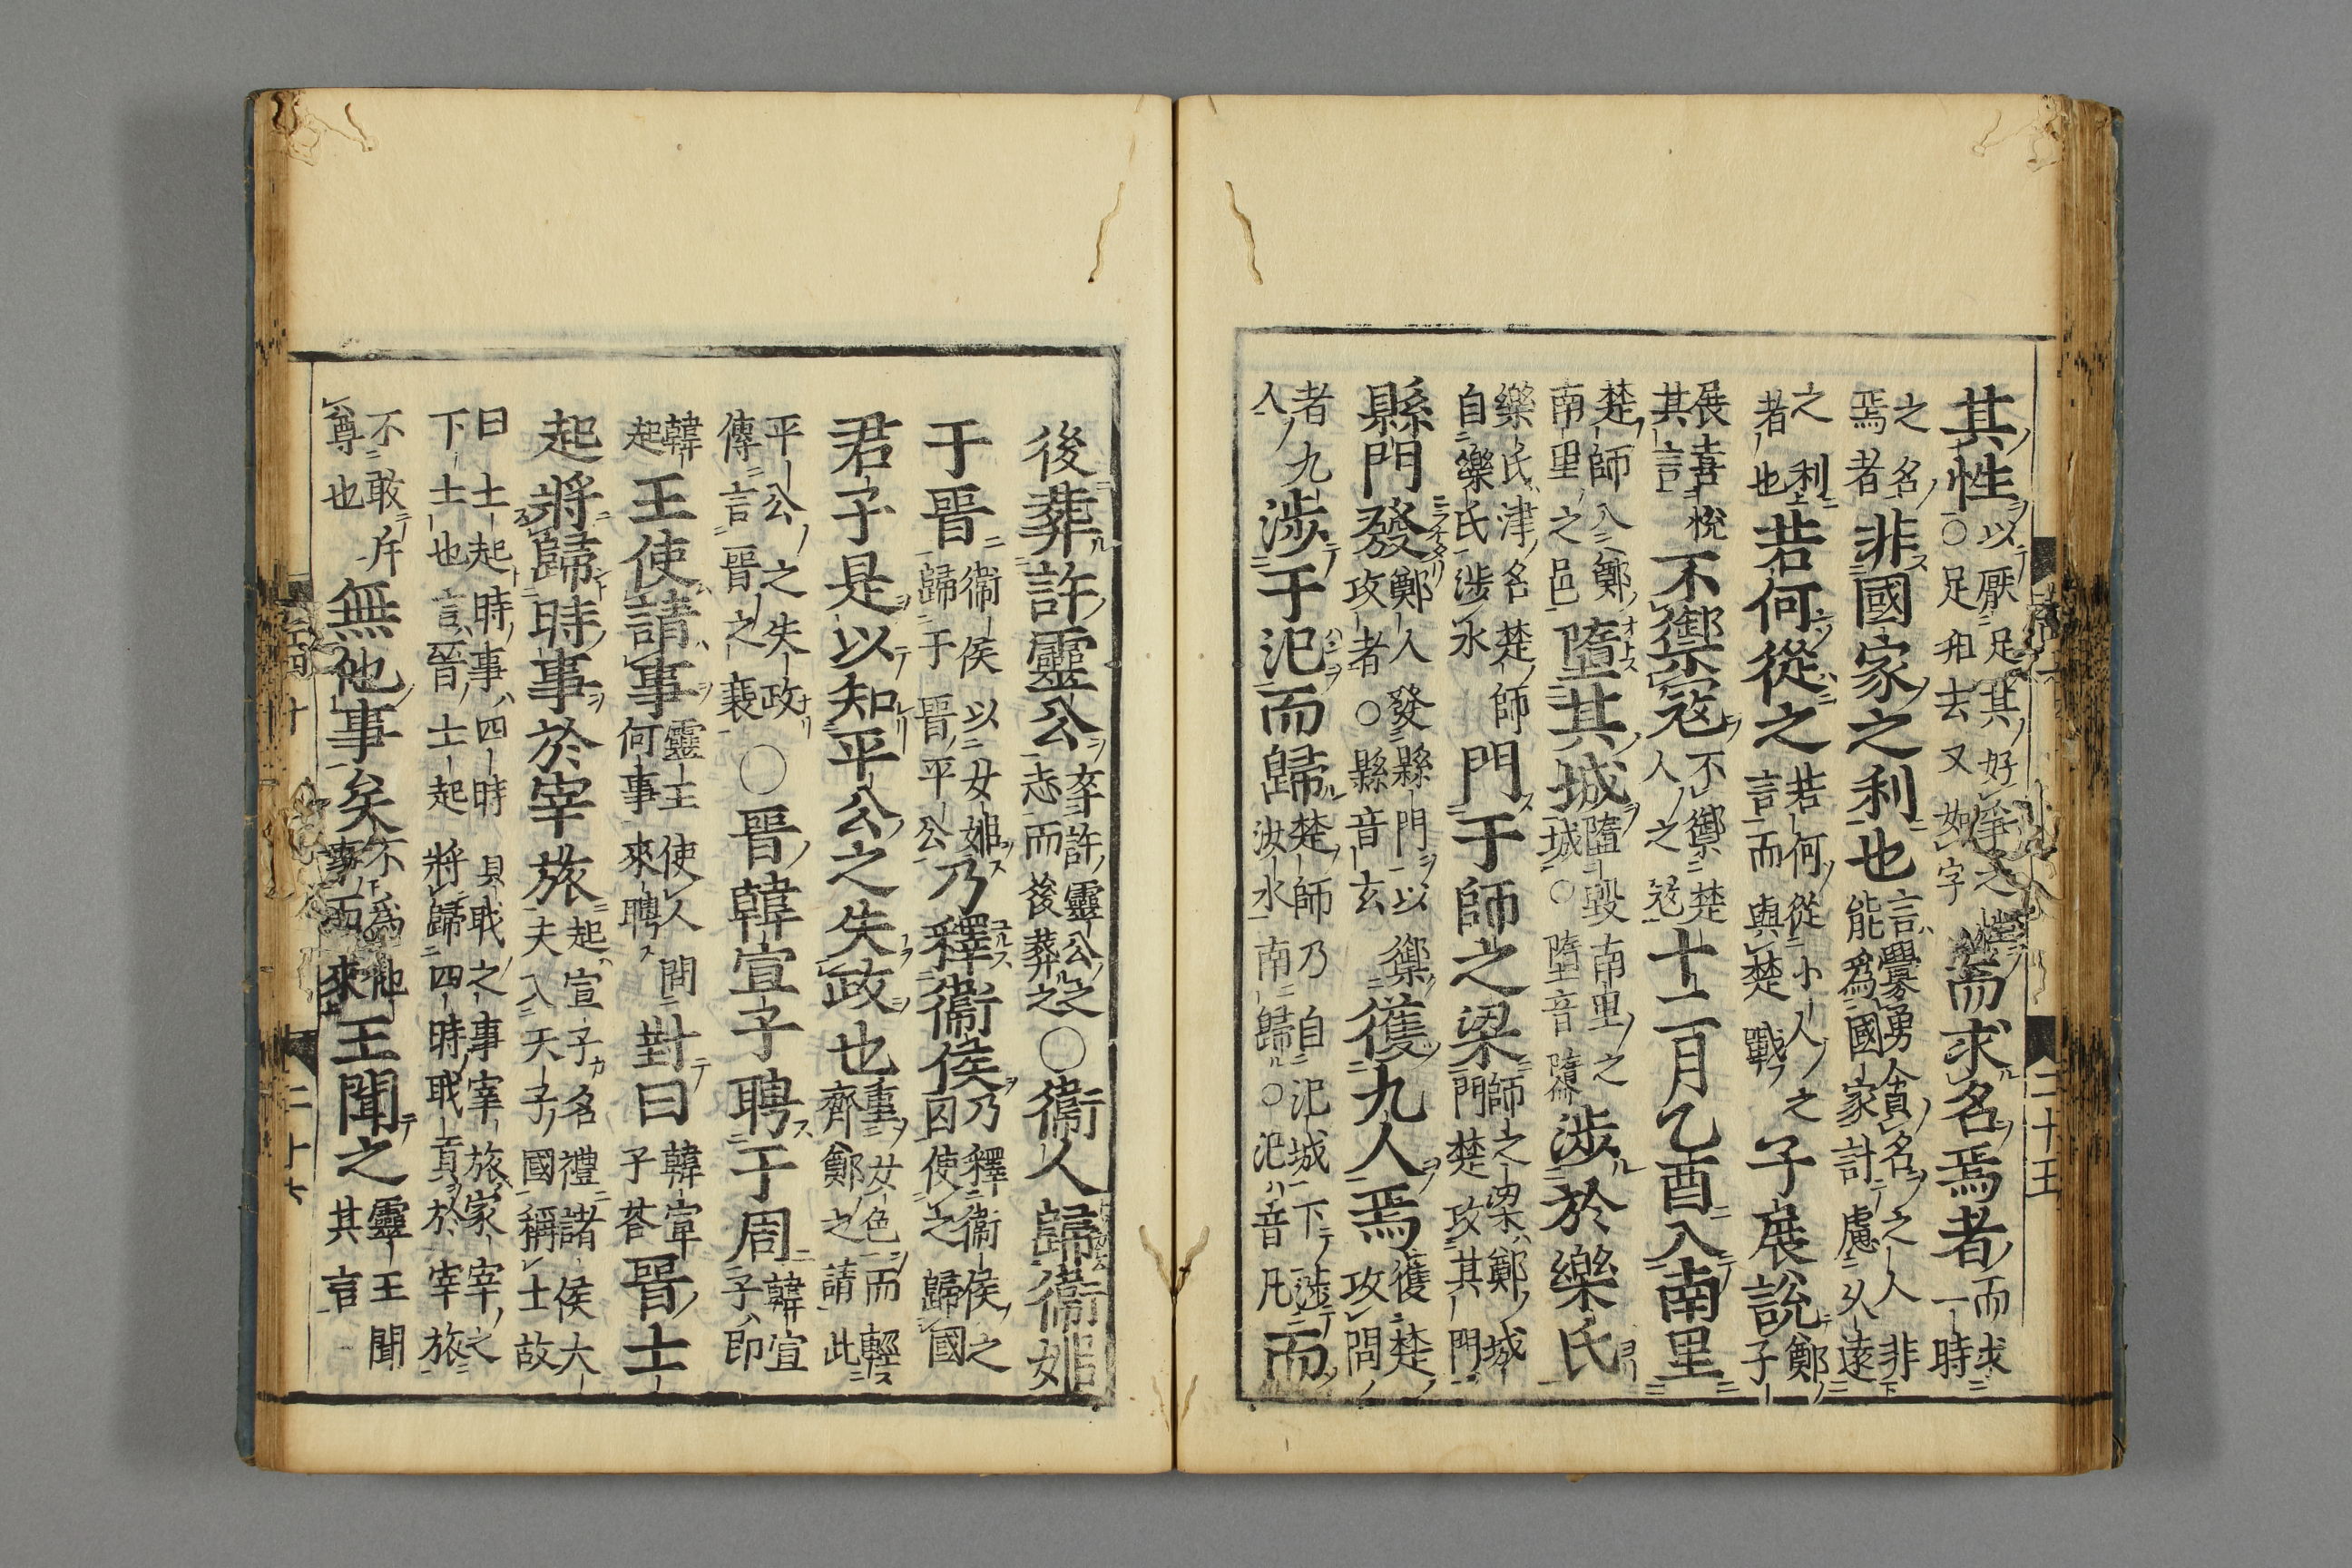 其性以厭足其好爭之性○足 去又如字而求名焉者而求一時
之名焉者非國家之利也言釁勇貪名之人非能為國家計慮久遠
之利者也若何從之若何從小人之言而與楚戰子展說鄭子
展喜悅其言不禦寇不禦楚人之寇十二月乙酉入南里
楚師入鄭南里之邑墮其城墮毀南里之城○墮音隳涉於樂氏
樂氏津名楚師自樂氏涉水門于師之梁師之梁鄭城門楚攻其門
縣門發鄭人發縣門以禦攻者○縣音玄獲九人焉獲楚攻門
者九人涉于氾而歸楚師乃自氾城下涉汝水南歸○氾音凡而
後葬許靈公卒許靈公之志而後葬之○衛人歸衛姬
于晉衛侯以女姬歸于晉平公乃釋衛侯乃釋衛侯之囚使之歸國
君子是以知平公之失政也重女色而輕齊鄭之請此
平公之失政傳言晉之衰○晉韓宣子聘于周韓宣子即
韓起王使請事靈王使人問何事來聘對曰韓宣子答晉士
起將歸時事於宰旅起宣子名禮諸侯大夫入天子國稱士故
曰士起時事四時貝職之事宰旅家宰之下士也言晉士起將歸四時職貢於宰旅
不敢斥尊也無他事矣不為他事而來王聞之靈王聞其言